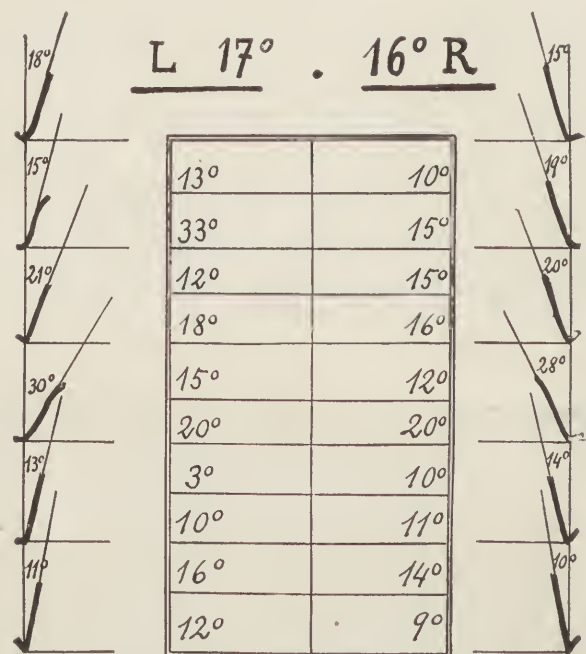 L 17° . 16° R
18°
15°
21°
30°
13°
11°
13° 10°
33° 15°
12° 15°
18° 16°
15° 12°
20° 20°
3° 10°
10° 11°
16° 14°
12° 9°
15°
19°
20°
28°
14°
10°